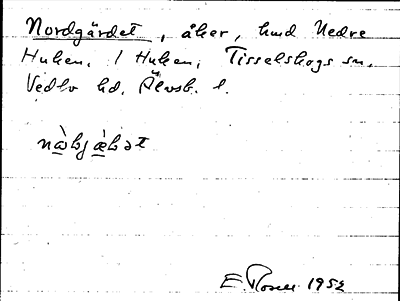 Nordgärdet, åker, hmd Nedre
Huken, 1 Huken, Tisselskogs sn,
Vedbo hd, Älvsb. l.
E Rosell 1952